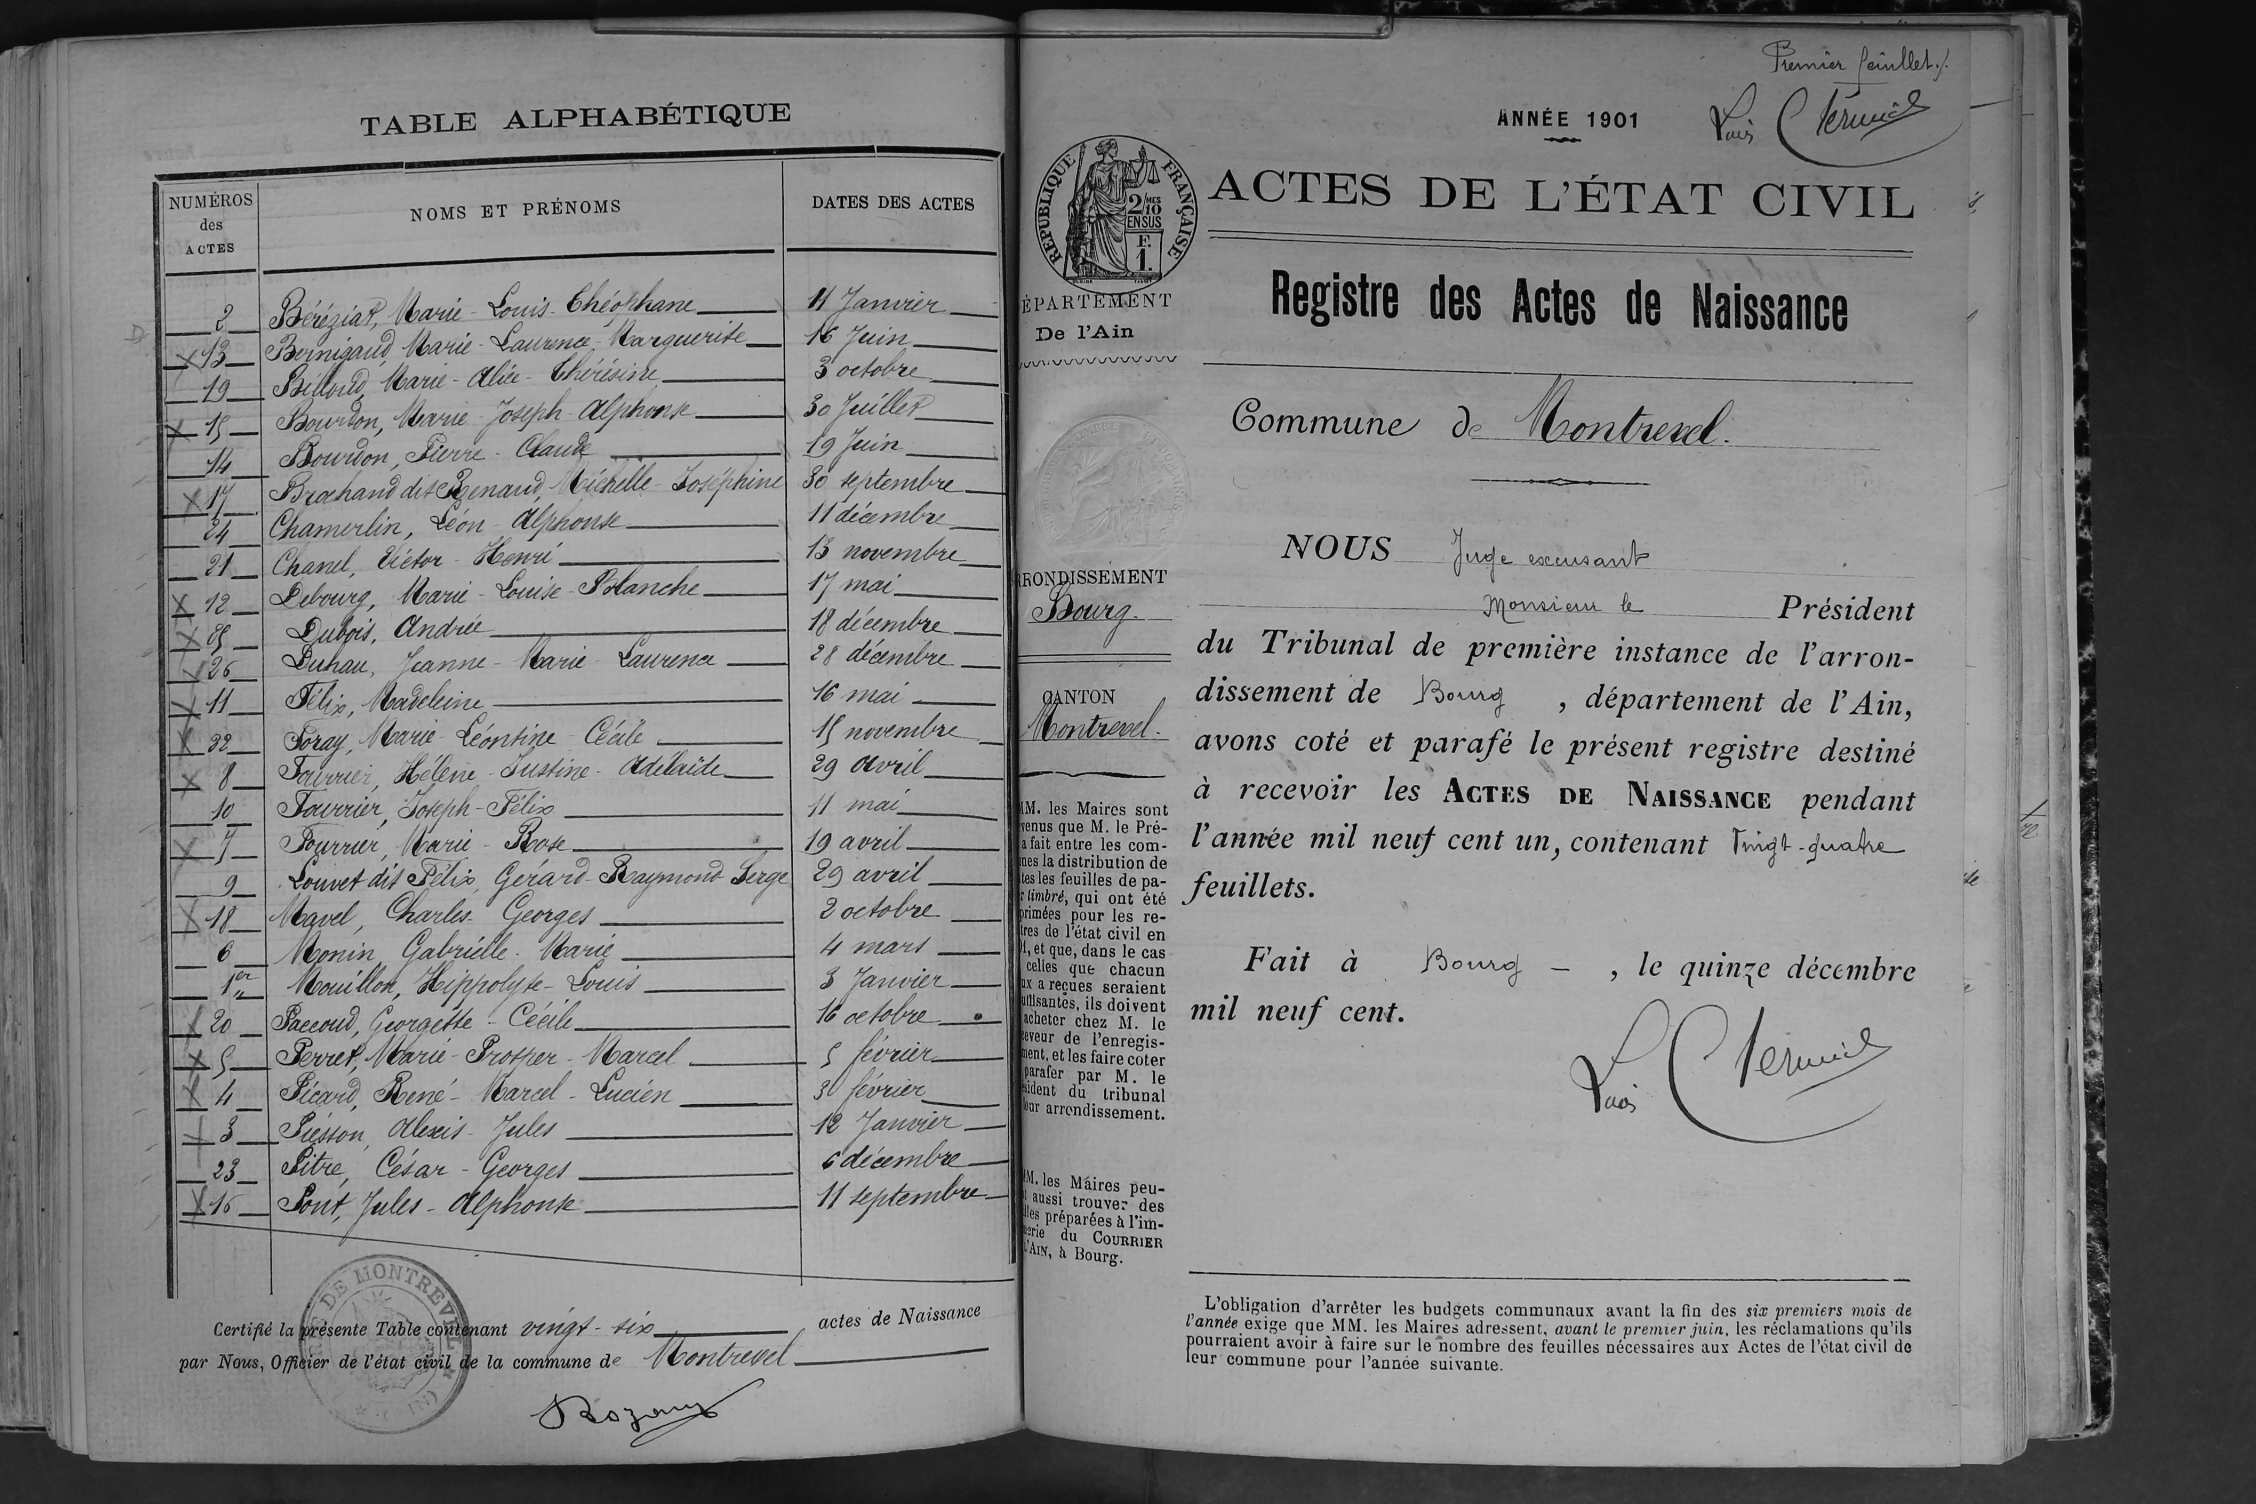 TABLE ALPHABÉTIQUE
NUMÉROS des ACTES NOMS ET PRÉNOMS DATES DES ACTES
2 Béréziat, Marie-Louis-Théophane 11 Janvier
13 Bernigaud, Marie-Laurence-Marguerite 16 Juin
19 Billoud, Marie-Alice-Thérésine 3 octobre
15 Bourdon, Marie-Joseph-Alphonse 30 Juillet
14 Bourdon, Pierre-Claude 19 Juin
17 Brochand dit Renaud, Michelle-Joséphine 30 septembre
24 Chamerlin, Léon-Alphonse 11 décembre
21 Chanel, Victor-Henri 13 novembre
12 Debourg, Marie-Louise-Blanche 17 mai
25 Dubois, André 18 décembre
26 Duhau, Jeanne-Marie-Laurence 28 décembre
11 Félix, Madeleine 16 mai
22 Foray, Marie-Léontine-Cécile 15 novembre
8 Fourrier, Hélène-Justine-Adélaïde 29 avril
10 Fourrier, Joseph-Félix 11 mai
7 Fourrier, Marie-Rose 19 avril
9 Louvet dit Félix, Gérard-Raymond-Serge 29 avril
18 Mavel, Charles-Georges 2 octobre
6 Monin, Gabrielle-Marie 4 mars
1er Mouillon, Hippolyte-Louis 3 Janvier
20 Paccoud, Georgette-Cécile 16 octobre
5 Perret, Marie-Prosper-Marcel 5 février
4 Picard, René-Marcel-Lucien 3 février
3 Piesson, Alexis-Jules 12 Janvier
23 Pitre, César-Georges 6 décembre
16 Pont, Jules-Alphonse 11 septembre
DE MONTREVEL
Certifié la présente Table contenant vingt-six actes de Naissance
par Nous, Officier de l'état civil de la commune de Montrevel
Premier feuillet.
ANNÉE 1901
Louis
RÉPUBLIQUE FRANÇAISE
2/10MES
EN SUS
F.
1.
ACTES DE L'ÉTAT CIVIL
Registre des Actes de Naissance
ÉPARTEMENT
De l'Ain
Commune de Montrevel.
RRONDISSEMENT
Bourg.
CANTON
Montrevel.
MM. les Maires sont
venus que M. le Pré-
a fait entre les com-
nes la distribution de
tes les feuilles de pa-
r timbré, qui ont été
primées pour les re-
tres de l'état civil en
1, et que, dans le cas
celles que chacun
ux a reçues seraient
uffisantes, ils doivent
acheter chez M. le
ceveur de l'enregis-
ment, et les faire coter
parafer par M. le
sident du tribunal
our arrondissement.
MM. les Maires peu-
t aussi trouver des
lles préparées à l'im-
merie du COURRIER
L'AIN, à Bourg.
NOUS Juge excusant
Monsieur le Président
du Tribunal de première instance de l'arron-
dissement de Bourg, département de l'Ain,
avons coté et parafé le présent registre destiné
à recevoir les ACTES DE NAISSANCE pendant
l'année mil neuf cent un, contenant Vingt-quatre
feuillets.
Fait à Bourg - , le quinze décembre
mil neuf cent.
Louis
L'obligation d'arrêter les budgets communaux avant la fin des six premiers mois de
l'année exige que MM. les Maires adressent, avant le premier juin, les réclamations qu'ils
pourraient avoir à faire sur le nombre des feuilles nécessaires aux Actes de l'état civil de
leur commune pour l'année suivante.